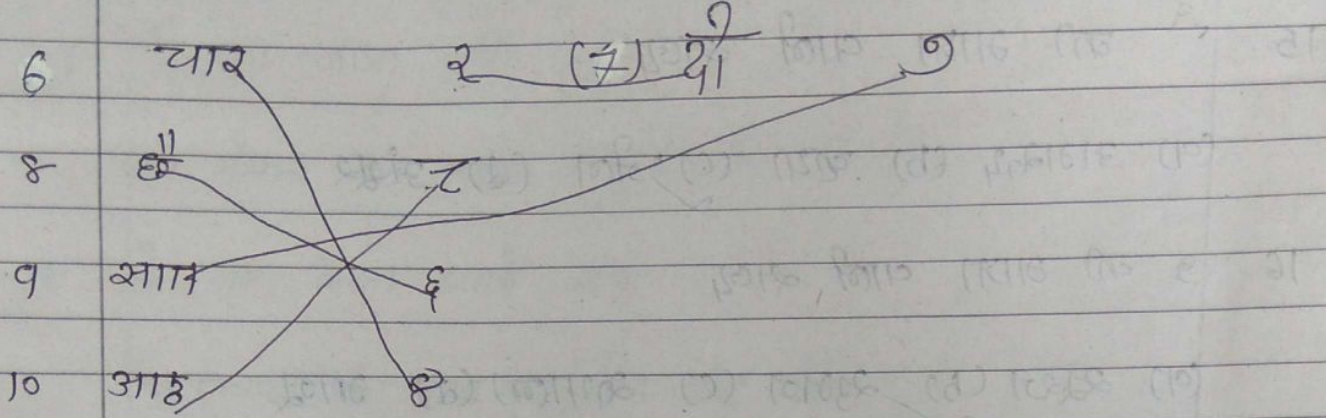 6 चार २ (7) दो ७
8 छः ८
9 सात ६
10 आठ ४